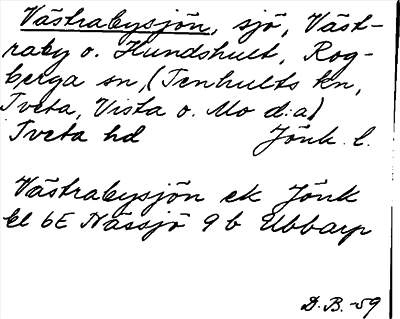 Västrabysjön, sjö, Väst-
raby o. Hundshult, Rog-
berga sn, (Tenhults kn,
Tveta, Vista o. Mo d:a)
Tveta hd Jönk. l.
Västrabysjön ek Jönk
bl 6E Nässjö 9 b Ubbarp
D.B. -59